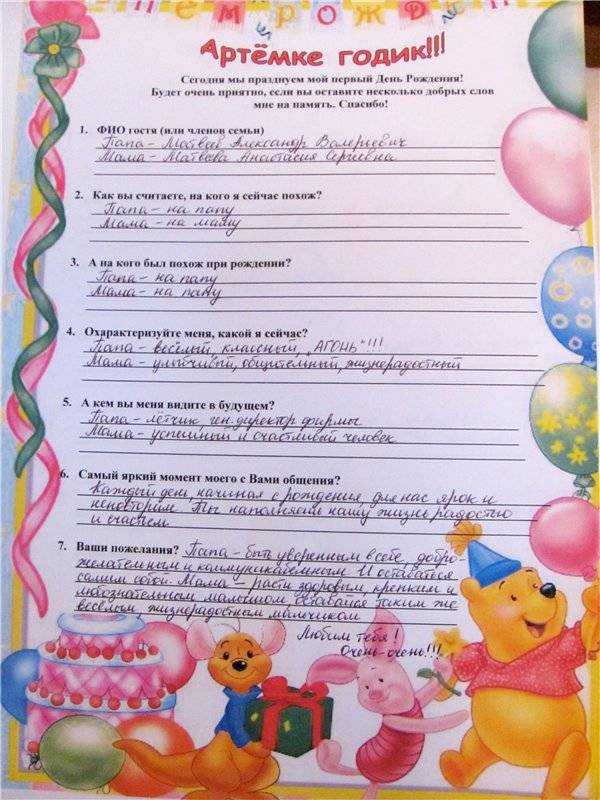 ДНЁМ РОЖДЕН
Артёмке годик!!!
Сегодня мы празднуем мой первый День Рождения!
Будет очень приятно, если вы оставите несколько добрых слов
мне на память. Спасибо!
1. ФИО гостя (или членов семьи)
Папа - Матвеев Александр Валерьевич
Мама - Матвеева Анастасия Сергеевна
2. Как вы считаете, на кого я сейчас похож?
Папа - на папу
Мама - на маму
3. А на кого был похож при рождении?
Папа - на папу
Мама - на папу
4. Охарактеризуйте меня, какой я сейчас?
Папа - весёлый, классный, „АГОНЬ"!!!
Мама - улыбчивый, общительный, жизнерадостный
5. А кем вы меня видите в будущем?
Папа - лётчик, ген. директор фирмы
Мама - успешный и счастливый человек
6. Самый яркий момент моего с Вами общения?
Каждый день, начиная с рождения для нас ярок и
неповторим. Ты наполняешь нашу жизнь радостью
и счастьем
7. Ваши пожелания? Папа - быть уверенным в себе, добро-
желательным и коммуникабельным. И оставаться
самим собой. Мама - расти здоровым, крепким и
любознательным малышом. Оставайся таким же
весёлым жизнерадостным мальчиком
Любим тебя!
Очень-очень!!!